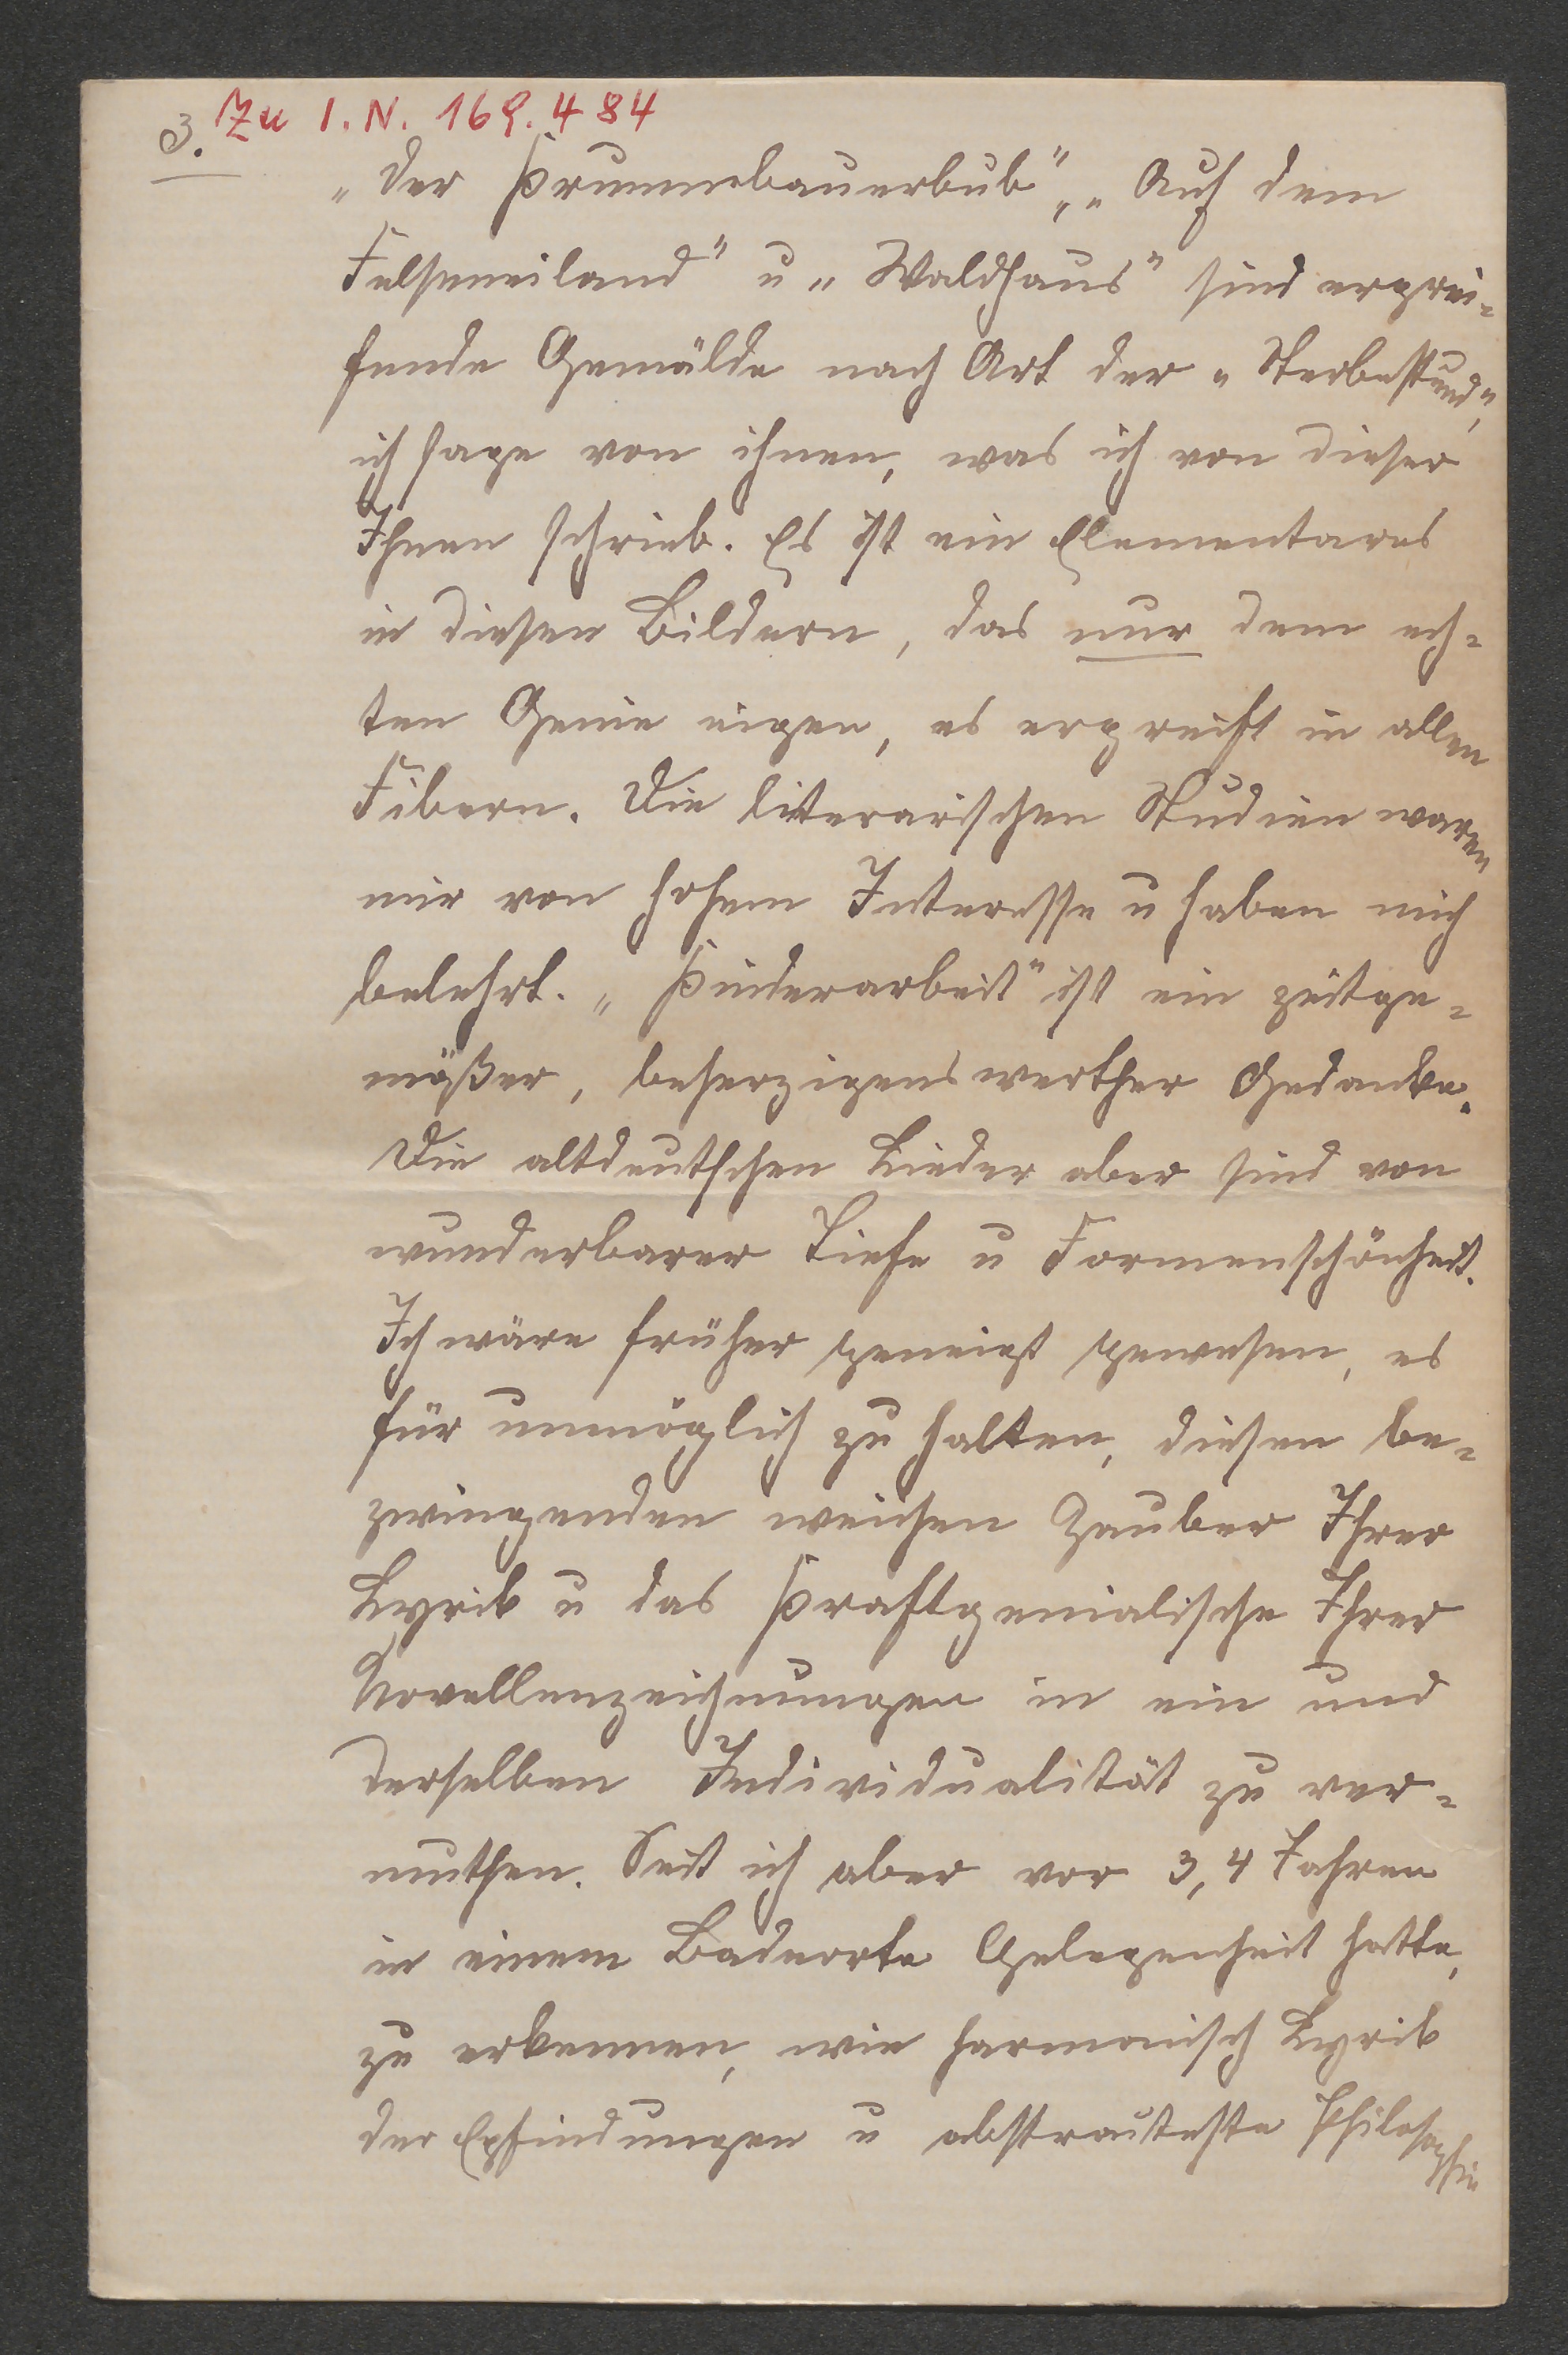 3. Zu I.N. 169.484
„Der Krummbauerbub", „Auf dem
Felseneiland" u „Waldhaus" sind ergrei-
fende Gemälde nach Art der „Sterbestund",
ich sage von ihnen, was ich von dieser
Ihnen schrieb. Es ist ein Elementares
in diesen Bildern, das nur dem ech-
ten Genie eigen, es ergreift in allen
Fibern. Die literarischen Studien waren
mir von hohem Interesse u haben mich
belehrt. „Kinderarbeit" ist ein zeitge-
mäßer, beherzigenswerther Gedanke.
Die altdeutschen Lieder aber sind von
wunderbarer Tiefe u Formenschönheit.
Ich wäre früher geneigt gewesen, es
für unmöglich zu halten, diesen be-
zwingenden weichen Zauber Ihrer
Lyrik u das Kraftgenialische Ihrer
Novellenzeichnungen in ein und
derselben Individualität zu ver-
muthen. Seit ich aber vor 3, 4 Jahren
in einem Badeorte Gelegenheit hatte,
zu erkennen, wie harmonisch Lyrik
der Epfindungen u abstrakteste Philosophie